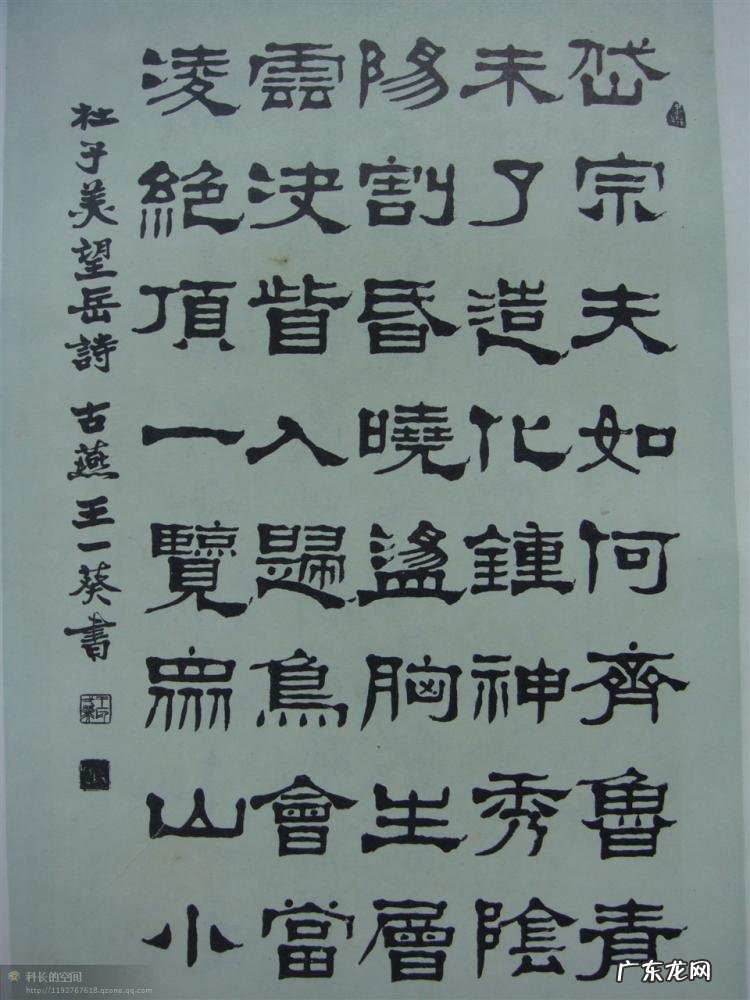 岱宗夫如何齊魯青
未了造化鍾神秀陰
陽割昏曉盪胸生層
雲決眥入歸鳥會當
凌絕頂一覽眾山小
杜子美望岳詩 古燕王一葵書
科长的空间
http://1193767618.qzone.qq.com
广东龙网